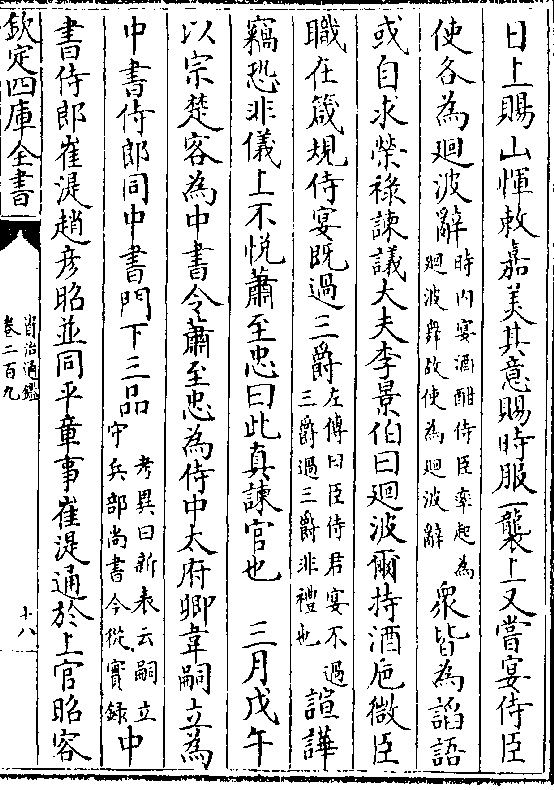 日上賜山惲敕嘉美其意賜時服一襲上又嘗宴侍臣
使各為廻波辭時内宴酒酣侍臣率起為廻波舞故使為廻波辭衆皆為諂語
或自求榮祿諫議大夫李景伯曰廻波爾持酒巵微臣
職在箴規侍宴既過三爵左傳曰臣侍君宴不過三爵過三爵非禮也諠譁
竊恐非儀上不悦蕭至忠曰此真諫官也　三月戊午
以宗楚客為中書令蕭至忠為侍中太府卿韋嗣立為
中書侍郎同中書門下三品考異曰新表云嗣立守兵部尚書今從實錄中
書侍郎崔湜趙彦昭並同平章事崔湜通於上官昭容
欽定四庫全書
資治通鑑
卷二百九
十八